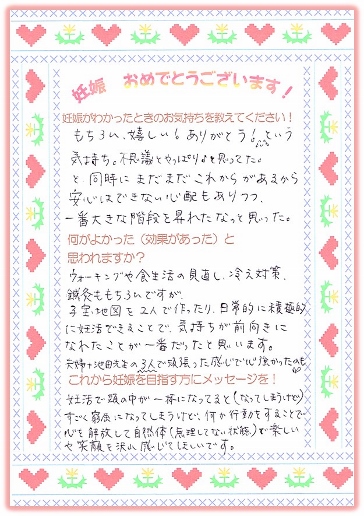 妊娠 おめでとうございます!
妊娠がわかったときのお気持ちを教えてください!
もちろん、嬉しい!ありがとう!という
気持ち。不思議とやっぱり。と思ってた。
と同時にまだまだこれからがあるから
安心はできない心配もありつつ、
一番大きな階段を昇れたなっと思った。
何がよかった(効果があった)と
思われますか?
ウォーキングや食生活の見直し、冷え対策、
鍼灸ももちろんですが、
子宝地図を2人で作ったり、日常的に積極的
に妊活できることで、気持ちが前向きに
なれたことが一番だったと思います。
夫婦+池田先生の3人で頑張った感じで心強かったのも
これから妊娠を目指す方にメッセージを!
妊活で頭の中が一杯になってると(なってしまうけど)
すごく窮屈になってしまうけど、何か行動をすることで
心を解放して自然体(無理してない状態)で楽しい
や笑顔を沢山感じてほしいです。